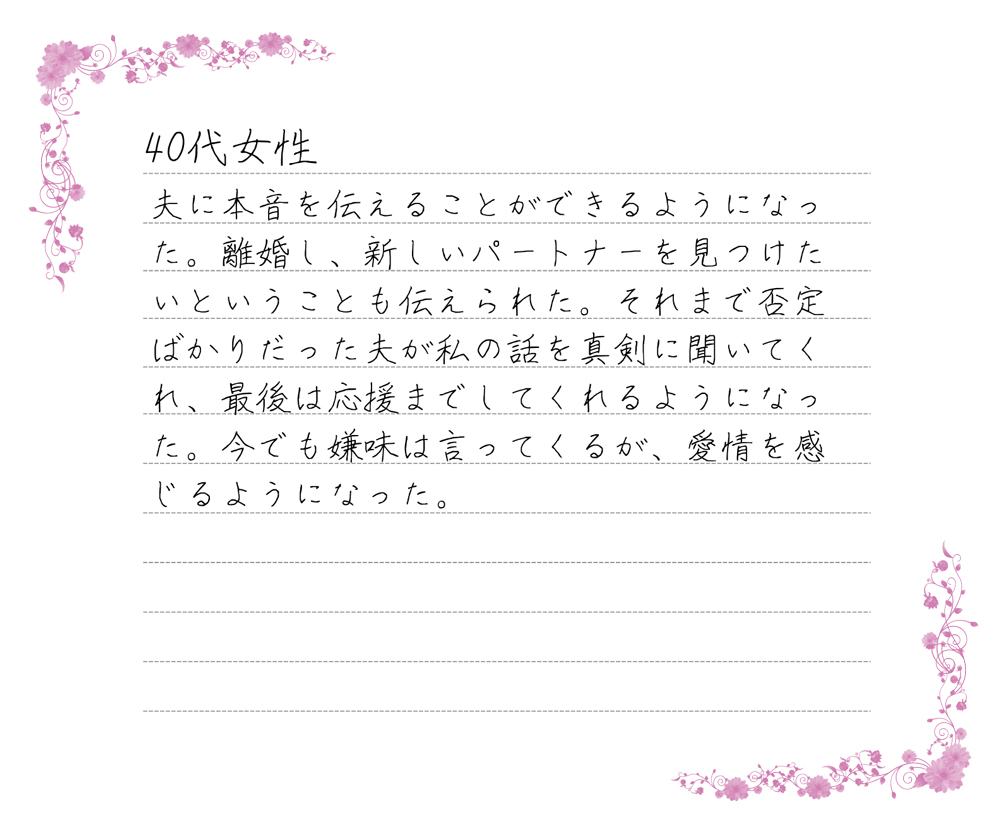 40代女性
夫に本音を伝えることができるようになっ
た。離婚し、新しいパートナーを見つけた
いということも伝えられた。それまで否定
ばかりだった夫が私の話を真剣に聞いてく
れ、最後は応援までしてくれるようになっ
た。今でも嫌味は言ってくるが、愛情を感
じるようになった。